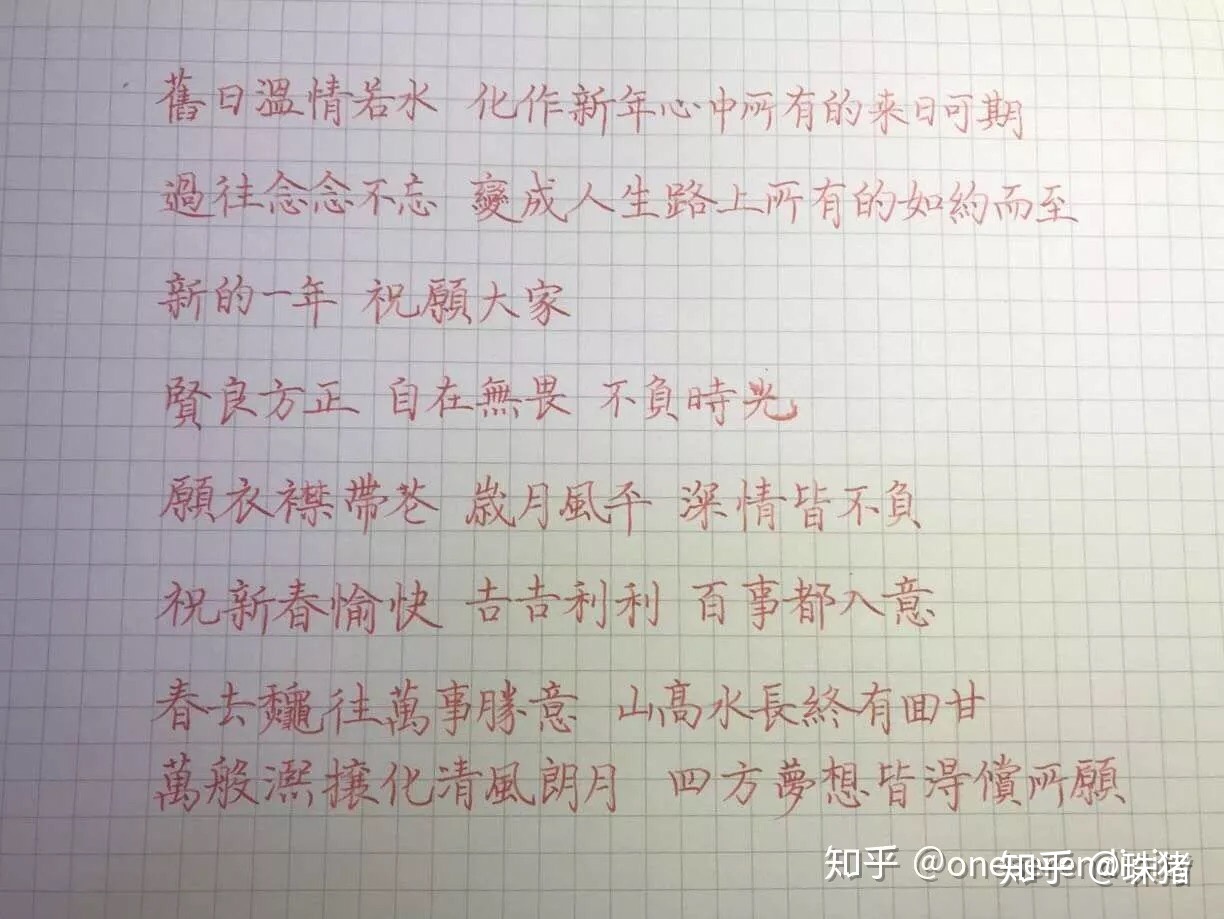 舊日溫情若水 化作新年心中所有的来日可期
過往念念不忘 變成人生路上所有的如約而至
新的一年 祝願大家
賢良方正 自在無畏 不負時光
願衣襟帶花 歲月風平 深情皆不負
祝新春愉快 吉吉利利 百事都入意
春去龝往萬事勝意 山高水長終有回甘
萬般熙攘化清風朗月 四方夢想皆得償所願
知乎 @珠猪